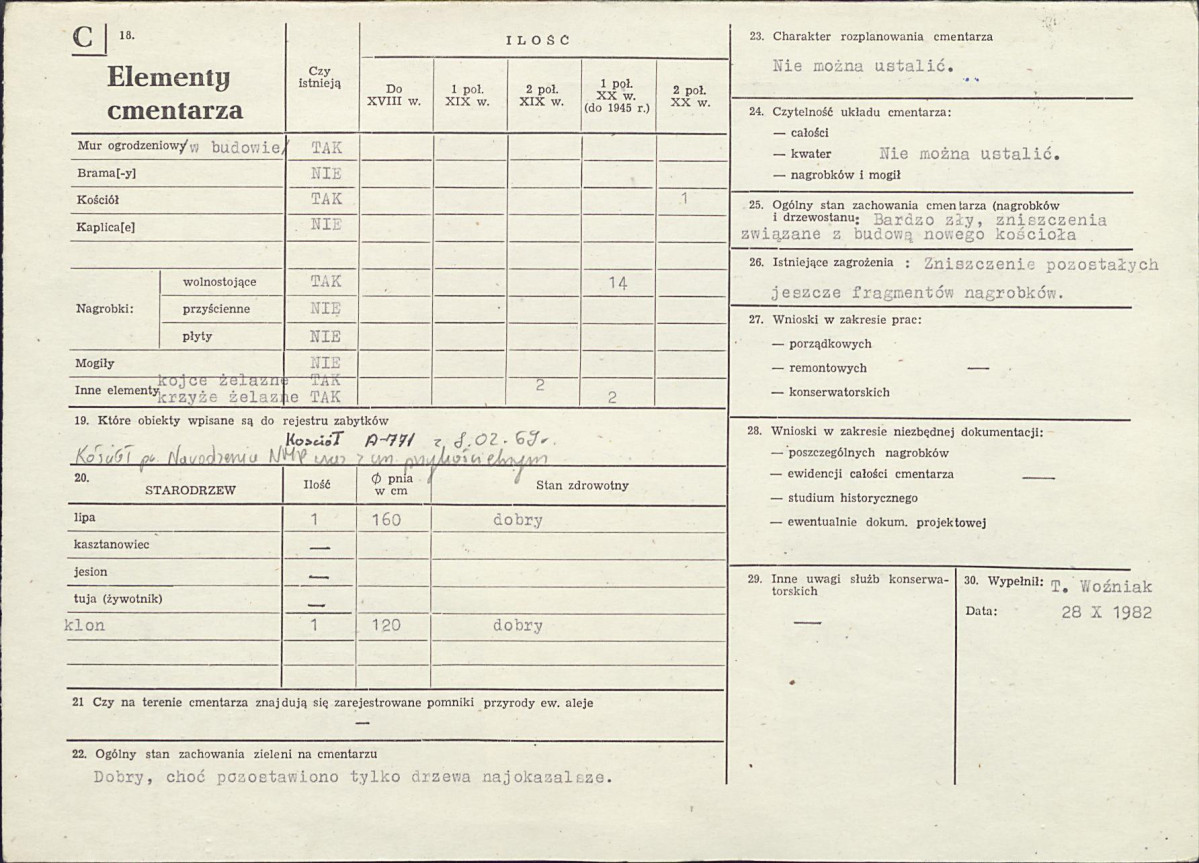 C 18.
Elementy
cmentarza
Czy
istnieją
ILOŚĆ
Do
XVIII w.
1 poł.
XIX w.
2 poł.
XIX w.
1 poł.
XX w.
(do 1945 r.)
2 poł.
XX w.
Mur ogrodzeniowy /w budowie/ TAK
Brama[-y] NIE
Kościół TAK 1
Kaplica[e] NIE
Nagrobki:
wolnostojące TAK 14
przyścienne NIE
płyty NIE
Mogiły NIE
Inne elementy
kojce żelazne TAK 2
krzyże żelazne TAK 2
19. Które obiekty wpisane są do rejestru zabytków
Kościół A-771 z 8.02.69r.
Kościół pw. Narodzenia NMP wraz z cm. przykościelnym
20.
STARODRZEW Ilość Ø pnia
w cm Stan zdrowotny
lipa 1 160 dobry
kasztanowiec —
jesion —
tuja (żywotnik) —
klon 1 120 dobry
21 Czy na terenie cmentarza znajdują się zarejestrowane pomniki przyrody ew. aleje
—
22. Ogólny stan zachowania zieleni na cmentarzu
Dobry, choć pozostawiono tylko drzewa najokazalsze.
23. Charakter rozplanowania cmentarza
Nie można ustalić.
24. Czytelność układu cmentarza:
— całości
— kwater Nie można ustalić.
— nagrobków i mogił
25. Ogólny stan zachowania cmentarza (nagrobków
i drzewostanu: Bardzo zły, zniszczenia
związane z budową nowego kościoła
26. Istniejące zagrożenia : Zniszczenie pozostałych
jeszcze fragmentów nagrobków.
27. Wnioski w zakresie prac:
— porządkowych
— remontowych —
— konserwatorskich
28. Wnioski w zakresie niezbędnej dokumentacji:
— poszczególnych nagrobków
— ewidencji całości cmentarza —
— studium historycznego
— ewentualnie dokum. projektowej
29. Inne uwagi służb konserwa-
torskich
—
30. Wypełnił: T. Woźniak
Data: 28 X 1982